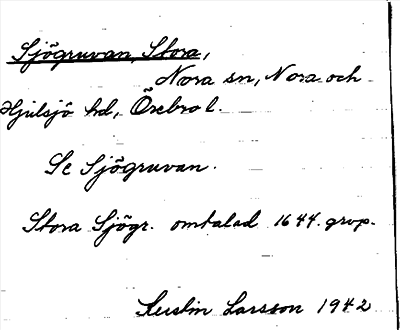 Sjögruvan, Stora,
Nora sn, Nora och
Hjulsjö hd, Örebro l.
Se Sjögruvan.
Stora Sjögr. omtalad 1644. grup.
Larsson 1942